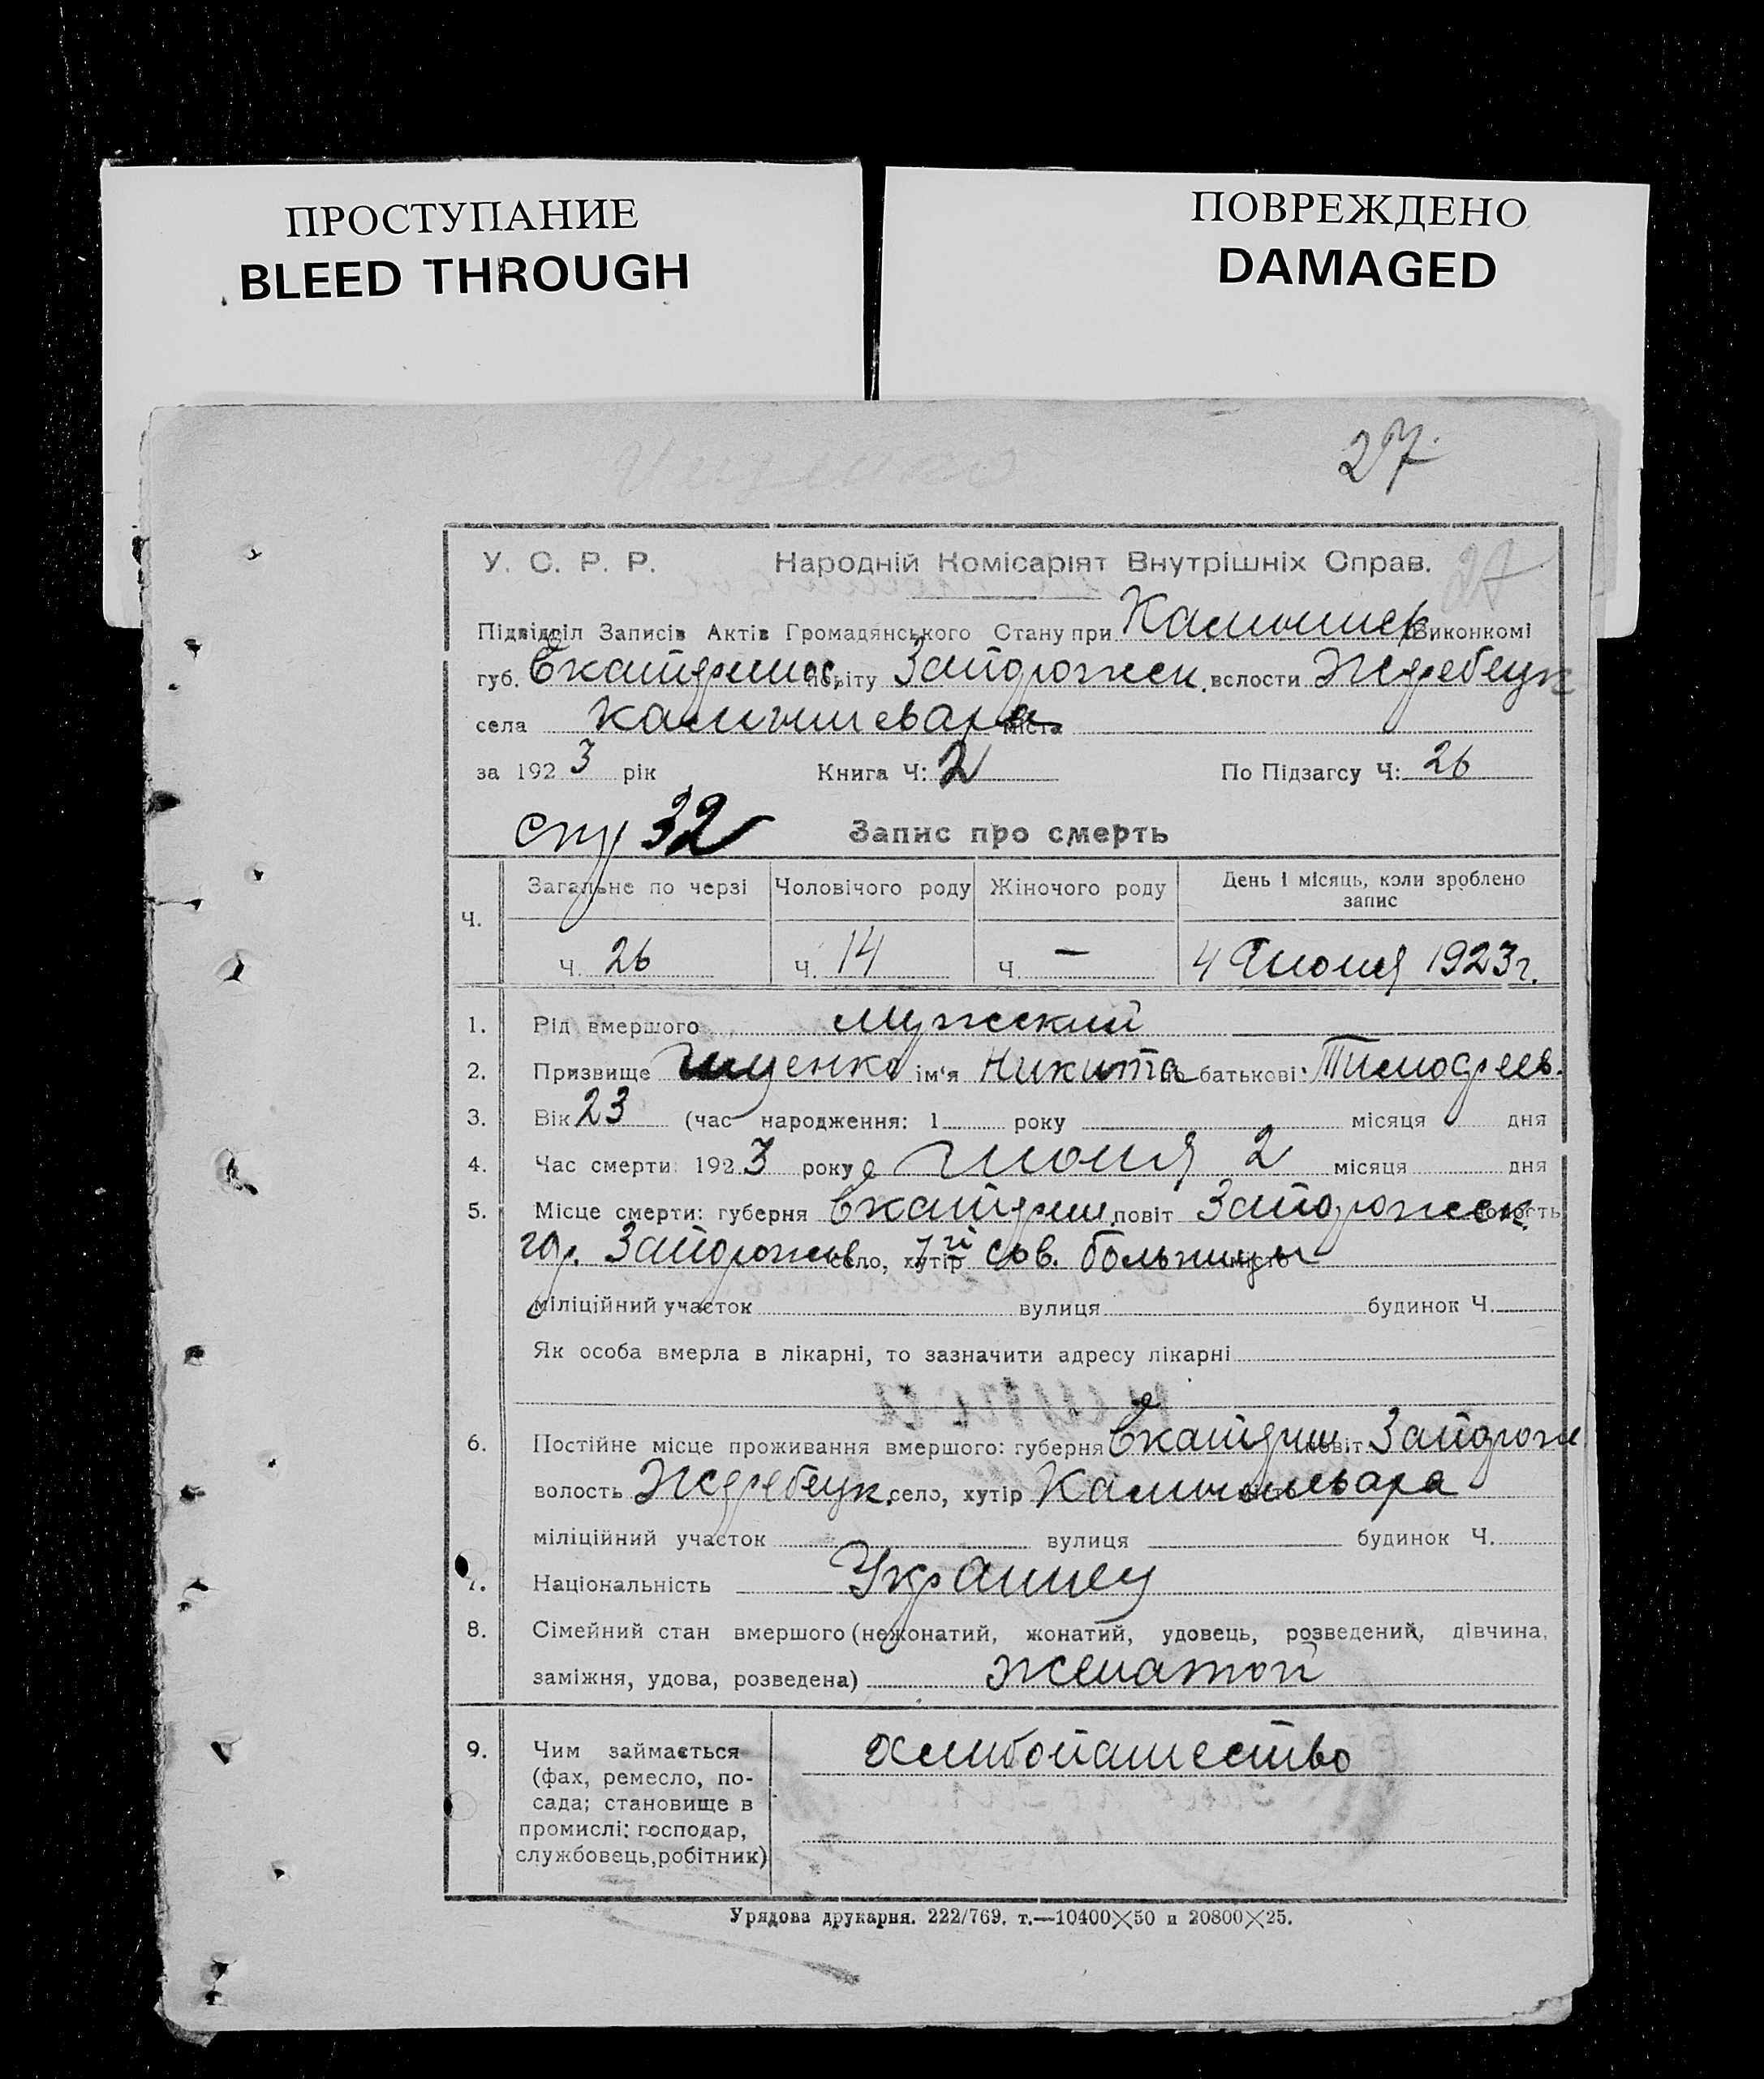 ПРОСТУПАНИЕ
BLEED THROUGH
ПОВРЕЖДЕНО
DAMAGED
27.
У. С. Р. Р. Народній Комісаріят Внутрішніх Справ. 27
Підвідділ Записів Актів Громадянського Стану при Камышев Виконкомі
губ. Екатеринос. повіту Запорожск. волости Жеребецк
села Камышеваха міста
за 1923 рік Книга Ч: 2 По Підзагсу Ч: 26
стр 32 Запис про смерть
Ч. Загальне по черзі Чоловічого роду Жіночого роду День і місяць, коли зроблено запис
Ч. 26 Ч. 14 Ч. — 4 Июня 1923 г.
1. Рід вмершого мужский
2. Призвище Ищенко ім'я Никита по батькові: Тимофеев.
3. Вік 23 (час народження: 1 року місяця дня
4. Час смерти: 1923 року Июня 2 місяця дня
5. Місце смерти: губерня Екатерин. повіт Запорожск. волость
гор. Запорожье село, хутір 7й сов. больницы місто
міліційний участок вулиця будинок Ч.
Як особа вмерла в лікарні, то зазначити адресу лікарні
6. Постійне місце проживання вмершого: губерня Екатерин. повіт Запорож
волость Жеребецк. село, хутір Камышеваха
міліційний участок вулиця будинок Ч.
7. Національність Украинец
8. Сімейний стан вмершого (нежонатий, жонатий, удовець, розведений, дівчина,
заміжня, удова, розведена) женатой
9. Чим займається хлибопашество
(фах, ремесло, по-
сада; становище в
промислі: господар,
службовець, робітник)
Урядова друкарня. 222/769. т.—10400×50 и 20800×25.